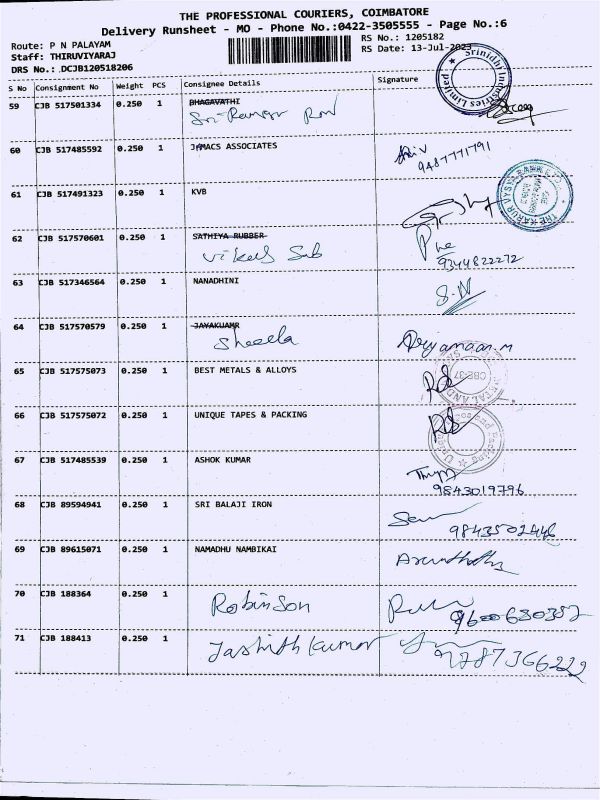 THE PROFESSIONAL COURIERS, COIMBATORE
Delivery Runsheet - MO - Phone No.:0422-3505555 - Page No.:6
Route: P N PALAYAM
Staff: THIRUVIYARAJ
DRS No.: DCJB120518206
RS No.: 1205182
RS Date: 13-Jul-2023
S No Consignment No Weight PCS Consignee Details Signature
59 CJB 517501334 0.250 1 BHAGAVATHI
Srinidhi Industries Limited
60 CJB 517485592 0.250 1 JAMACS ASSOCIATES
9487771791
61 CJB 517491323 0.250 1 KVB
THE KARUR VYSYA BANK LTD
62 CJB 517570601 0.250 1 SATHIYA RUBBER
Vikas Sab
9344822272
63 CJB 517346564 0.250 1 NANADHINI
S.N
64 CJB 517570579 0.250 1 JAYAKUAMR
Sheela
Ariyamaan.M
65 CJB 517575073 0.250 1 BEST METALS & ALLOYS
CBE-37
66 CJB 517575072 0.250 1 UNIQUE TAPES & PACKING
67 CJB 517485539 0.250 1 ASHOK KUMAR
9843019796
68 CJB 89594941 0.250 1 SRI BALAJI IRON
9843502446
69 CJB 89615071 0.250 1 NAMADHU NAMBIKAI
Arundhathy
70 CJB 188364 0.250 1 Robinson
9600630352
71 CJB 188413 0.250 1 Jashith Kumar
9787366222